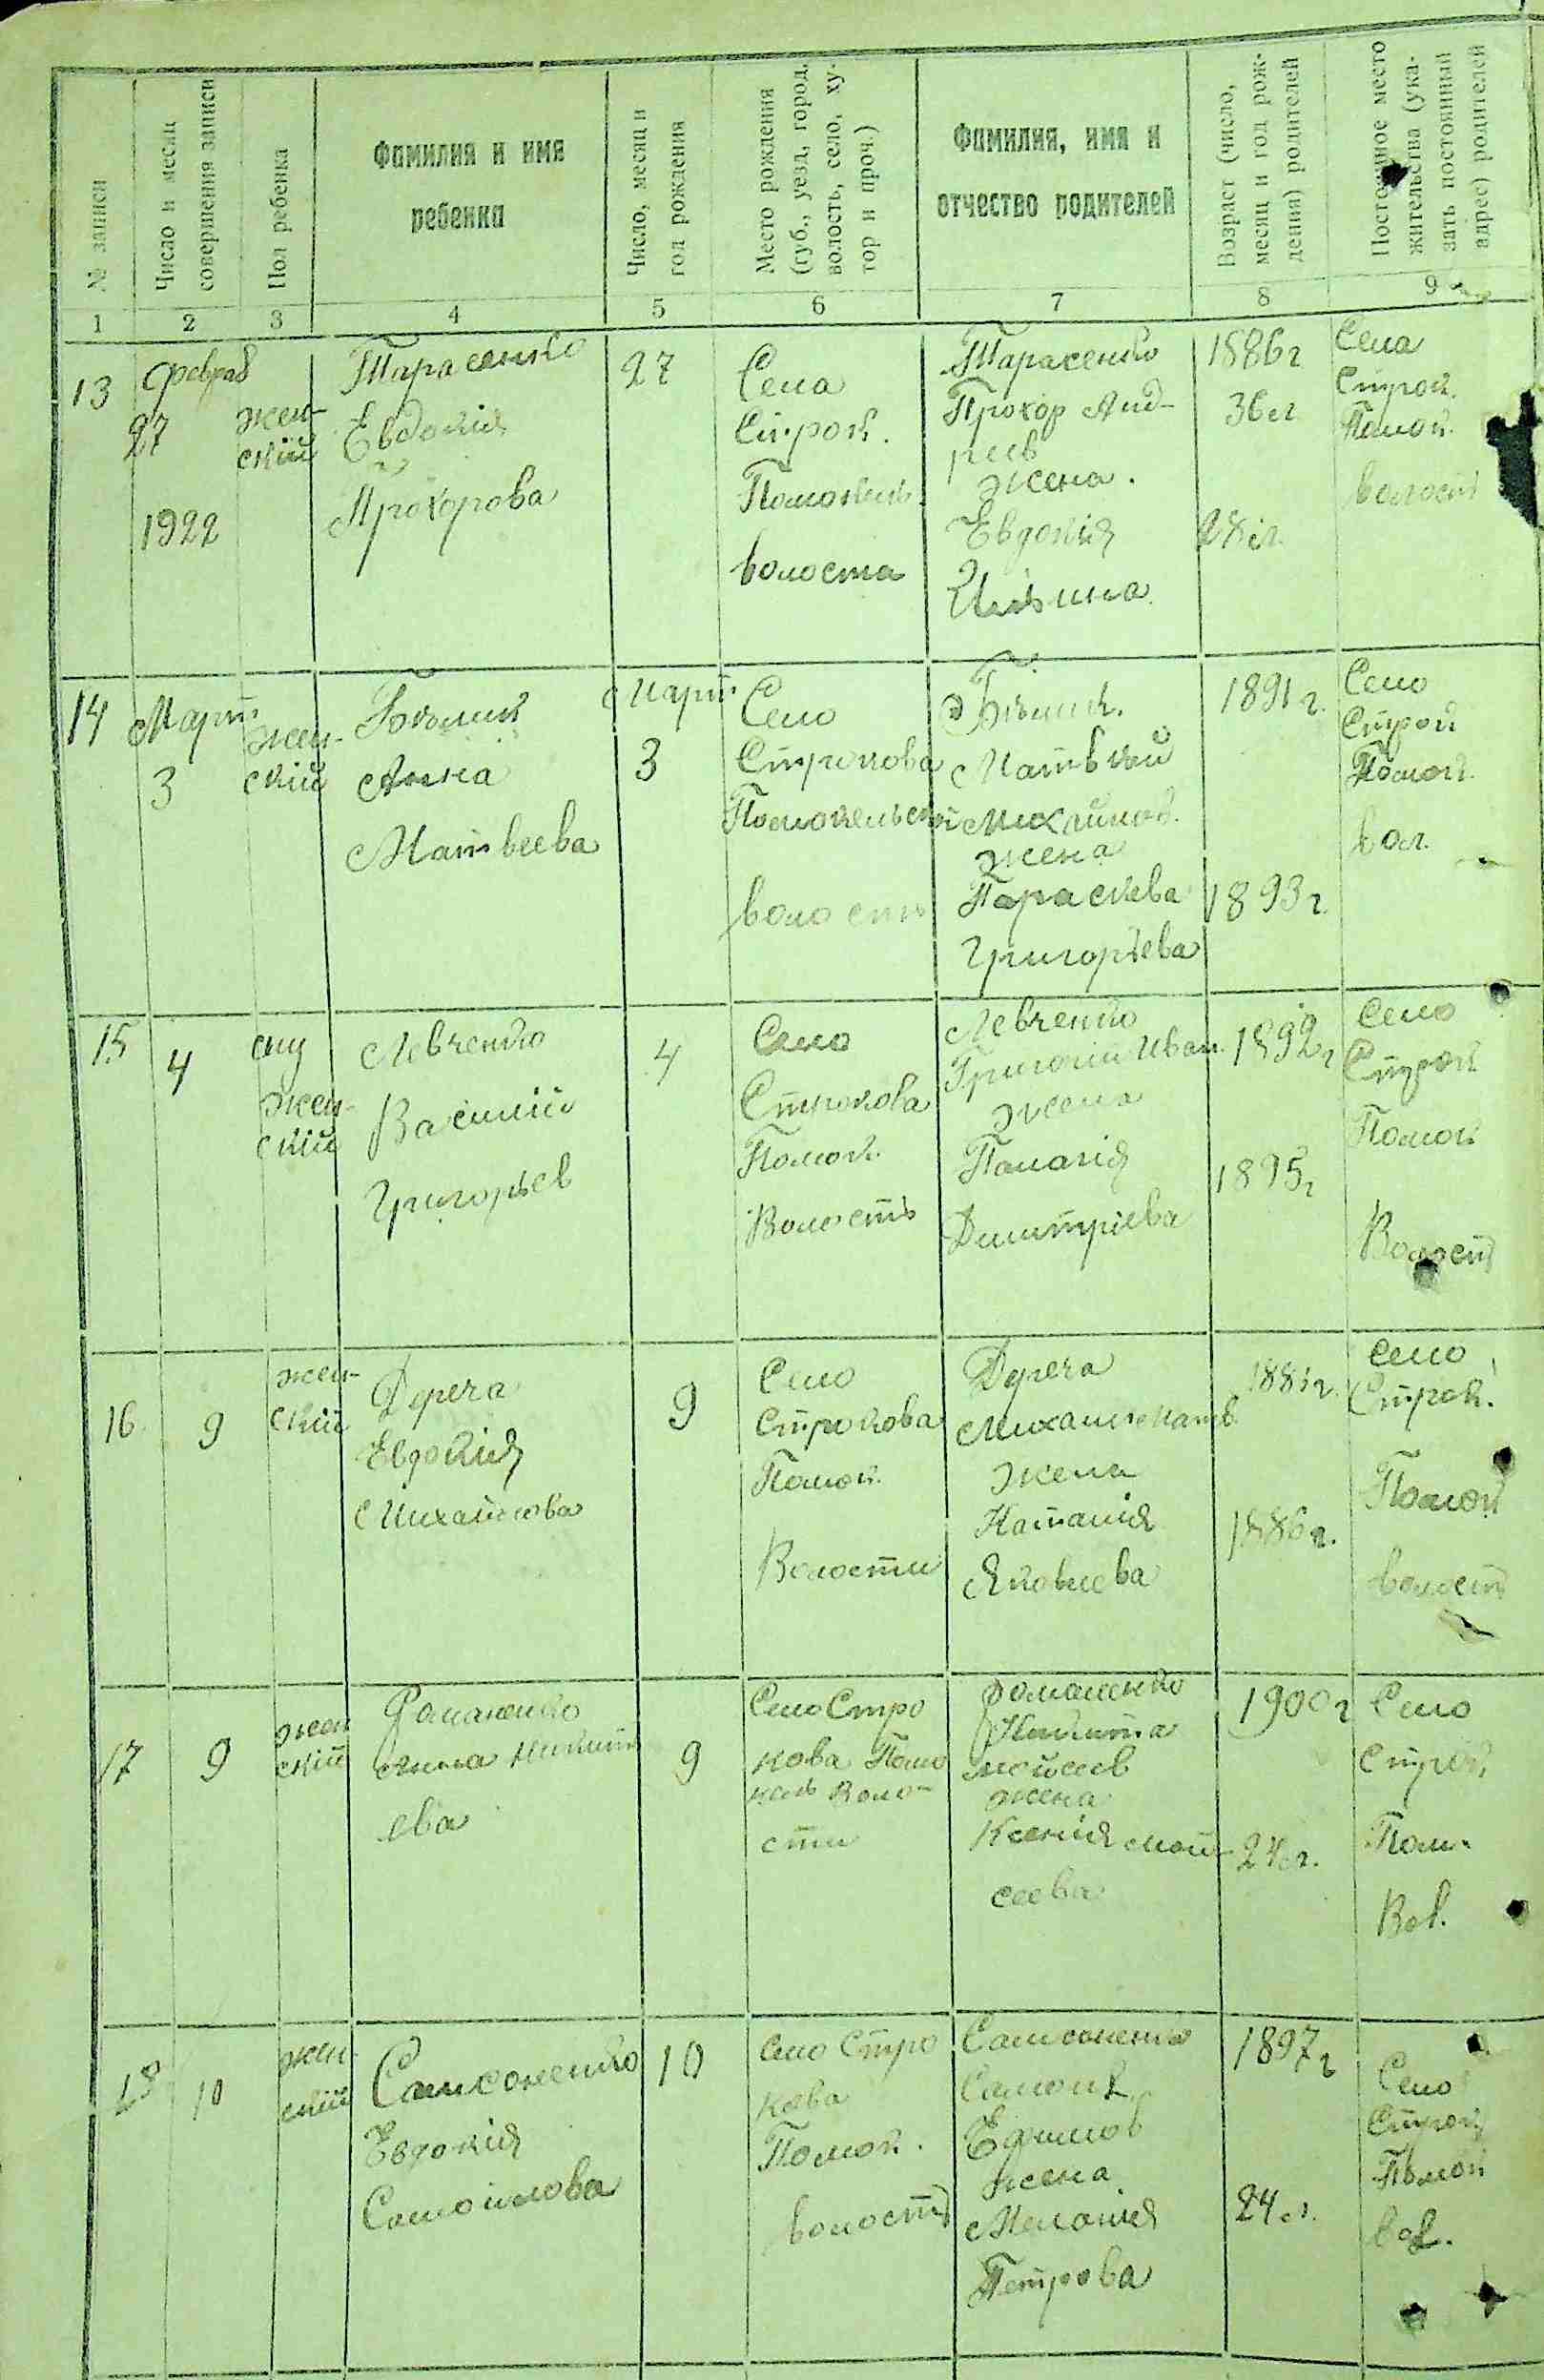 № записи
Число и месяц
совершения записи
Пол ребенка
Фамилия и имя
ребенка
Число, месяц и
год рождения
Место рождения
(губ., уезд, город,
волость, село, ху-
тор и проч.)
Фамилия, имя и
отчество родителей
Возраст (число,
месяц и год рож-
дения) родителей
Постоянное место
жительства (ука-
зать постоянный
адрес) родителей
1
2
3
4
5
6
7
8
9
13
Феврал
27
1922
жен-
скій
Тарасенко
Евдокия
Прохорова
27
Села
Строк.
волоста
Тарасенко
Прохор Анд-
реев
жена.
Евдокія
Ильина
1886 г
36 л
28 л.
Села
Строк.
Помок.
волост
14
Март
3
жен-
скій
Анна
Матвеева
Март
3
Село
Строкова
волость
Матвей
Михайлов.
жена
Параскева
Григорьева
1891 г.
1893 г.
Село
Строк
Помок.
вол.
15
4
му
жен-
скій
Левченко
Василий
Григорьев
4
Село
Строкова
Помок.
Волость
Левченко
Григорій Иван.
жена
Палагія
Димитріева
1892 г
1895 г
Село
Строк
Помок
Волост
16
9
жен-
скій
Евдокія
Михайлова
9
Село
Строкова
Помок.
Волости
жена
Наталія
Яковлева
1886 г.
Село
Строк.
Помок
волост
17
9
жен
скій
Романенко
Анна Никит
ева
9
Село Стро
кова Помо
кель Воло-
сти
Романенко
Никита
Мойсеев
жена
Ксенія Мой-
сеева
1900 г
24 л.
Село
Строк.
Пом.
Вол.
18
10
жен-
скій
Самсоненко
Евдокія
Самоилова
10
Село Стро
кова
Помок.
волость
Самсоненко
Самоил
Ефимов
жена
Меланія
Петрова
1897 г
24 л.
Село
Строк
Помок
вол.